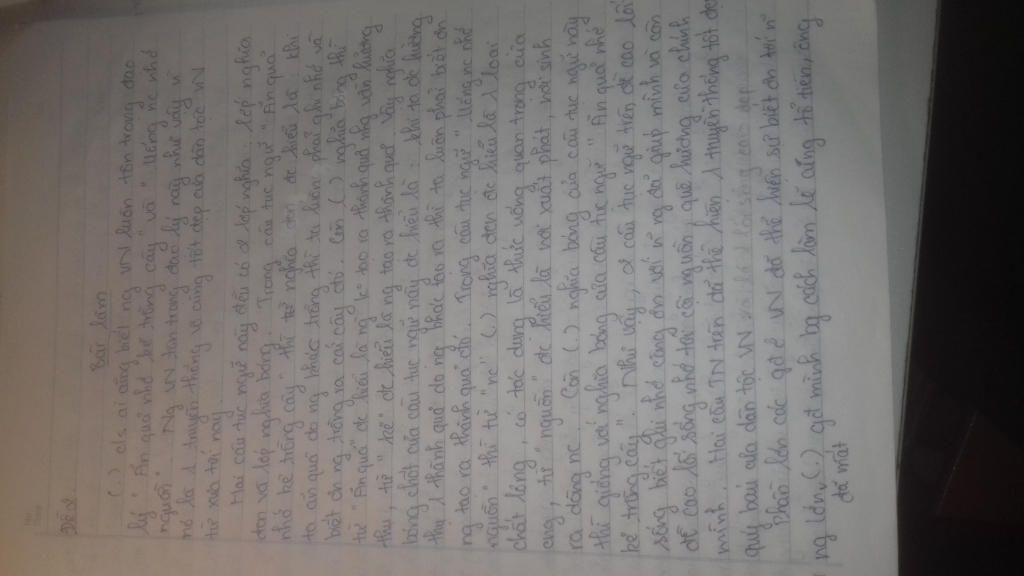 Đề 2.
Bài làm
(.) c/s ai cũng biết ng VN luôn tôn trọng đạo
lý " Ăn quả nhớ kẻ trồng cây" và " Uống nc nhớ
nguồn". Ng VN tôn trọng đạo lý này như vậy vì
nó là 1 truyền thống vô cùng tốt đẹp của dân tộc VN
từ xưa tới nay.
Hai câu tục ngữ này đều có 2 lớp nghĩa: lớp nghĩa
đen và lớp nghĩa bóng. Trong câu tục ngữ " Ăn quả
nhớ kẻ trồng cây" thì từ nghĩa đen đc hiểu là: khi
ta ăn quả do ng khác trồng thì ta luôn phải ghi nhớ và
biết ơn ng trồng ra cái cây đó. Còn (.) nghĩa bóng thì
từ " Ăn quả" đc hiểu là ng tạo ra thành quả mà hưởng
thụ, từ " kẻ" đc hiểu là ng tạo ra thành quả. Vậy nghĩa
bóng chốt của câu tục ngữ này đc hiểu là: khi ta đc hưởng
thụ 1 thành quả do ng khác tạo ra thì ta luôn phải biết ơn
ng tạo ra thành quả đó. Trong câu tục ngữ " Uống nc nhớ
nguồn" thì từ " nc" (.) nghĩa đen đc hiểu là 1 loại
chất lỏng, có tác dụng là thức uống quan trọng của
ng, từ " nguồn" đc hiểu là nơi xuất phát, nơi sinh
ra dòng nc. Còn (.) nghĩa bóng của câu tục ngữ này
thì giống với nghĩa bóng của câu tục ngữ " Ăn quả nhớ
kẻ trồng cây". Như vậy, 2 câu tục ngữ trên đề cao lối
sống biết ghi nhớ công ơn với n~ ng đã giúp mình và còn
đề cao lối sống nhớ tới cội nguồn, quê hương của chính
mình. Hai câu TN trên đã thể hiện 1 truyền thống tốt đẹp
quý báu của dân tộc VN
Phần lớn các gđ ở VN đã thể hiện sự biết ơn tới n~
ng lớn (.) gđ mình bg cách làm lễ cúng tổ tiên, ông
đã mất